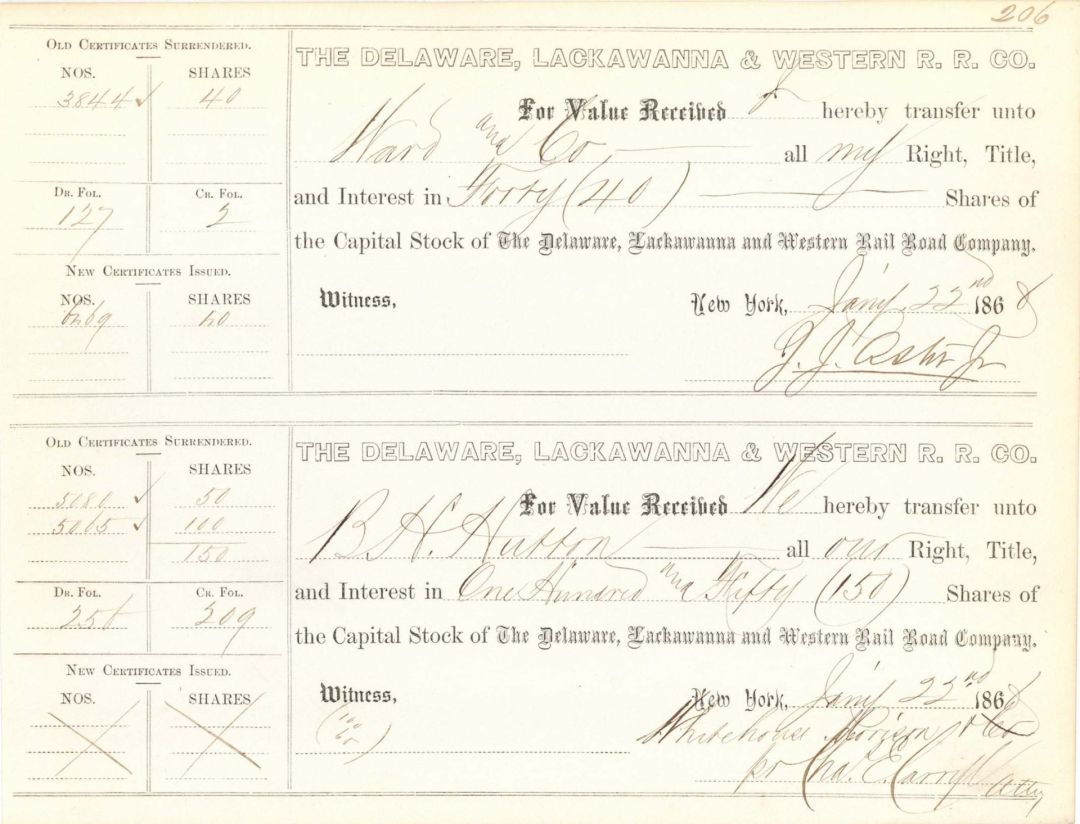 206
OLD CERTIFICATES SURRENDERED.
NOS. SHARES
3844 ✓ 40
DR. FOL. CR. FOL.
127 2
NEW CERTIFICATES ISSUED.
NOS. SHARES
40
THE DELAWARE, LACKAWANNA & WESTERN R. R. CO.
For Value Received I hereby transfer unto
Ward and Co all my Right, Title,
and Interest in Forty (40) Shares of
the Capital Stock of The Delaware, Lackawanna and Western Rail Road Company.
Witness, New York, Jany 22nd 1868
J. J. Astor Jr
OLD CERTIFICATES SURRENDERED.
NOS. SHARES
5086 ✓ 50
5065 ✓ 100
150
DR. FOL. CR. FOL.
256 209
NEW CERTIFICATES ISSUED.
NOS. SHARES
THE DELAWARE, LACKAWANNA & WESTERN R. R. CO.
For Value Received We hereby transfer unto
B H. Hutton all our Right, Title,
and Interest in One Hundred and Fifty (150) Shares of
the Capital Stock of The Delaware, Lackawanna and Western Rail Road Company.
Witness, New York, Jany 22nd 1868
Whitehouse Morison & Co
pr Chas. E. Atty